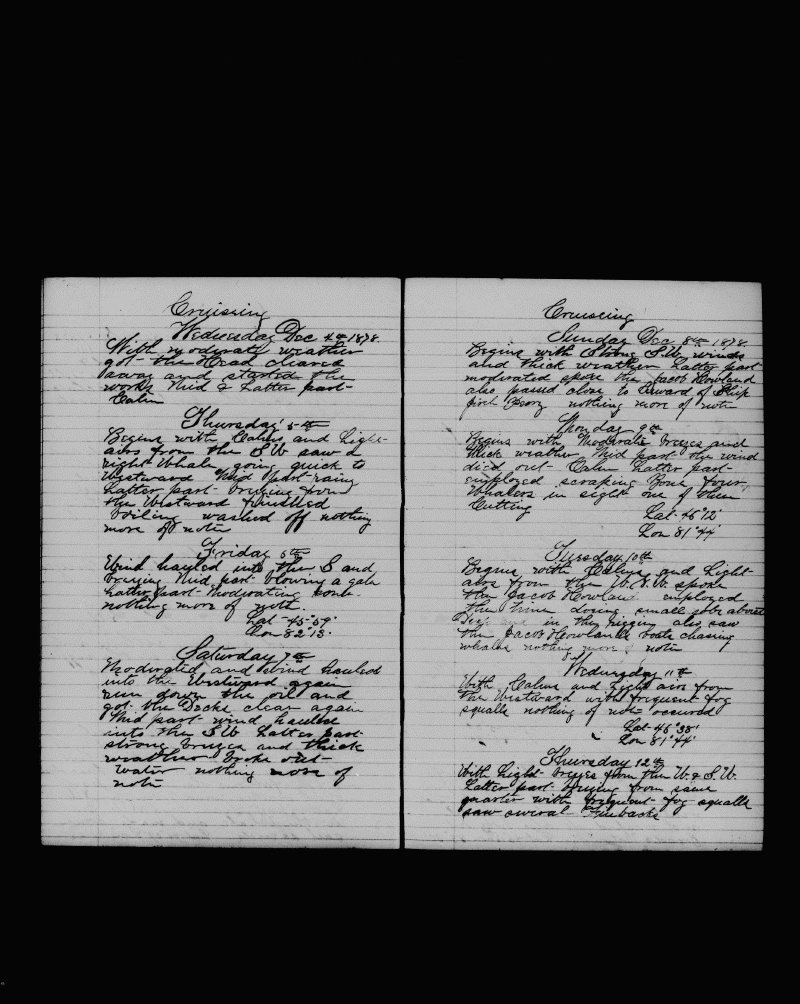 Cruising
Wednesday Dec 4th 1878.
With moderate weather
got the Head cleared
away and started the
works Mid & Latter part
Calm
Thursday 5th
Begins with Calms and Light
airs from the S W saw a
right Whale going quick to
Westward Mid part rainy
Latter part breezing from
the Westward finished
boiling washed off nothing
more of note
Friday 6th
Wind hauled into the S and
breezing Mid part blowing a gale
Latter part Moderating some
nothing more of note.
Lat 45°59'
Lon 82°13'
Saturday 7th
Moderated and wind hauled
into the Westward again
run down the oil and
got the Decks clear again
Mid part wind hauled
into the S W Latter part
strong breezes and thick
weather broke out
water nothing more of
note
Cruiseing
Sunday Dec 8th 1878.
Begins with Strong S.W. winds
and thick weather Latter part
moderated spoke the Jacob Howland
also passed close to Leward of Ship
nothing more of note
Monday 9th
Begins with Moderate breezes and
thick weather Mid part the wind
died out Calm Latter part
employed scraping Bone four
Whalers in sight one of them
Cutting
Lat 46°12'
Lon 81°44'
Tuesday 10th
Begins with Calms and Light
airs from the W.S.W. spoke
the Jacob Howland employed
the time doing small jobs about
in the rigging also saw
the Jacob Howlands boats chasing
whales nothing more of note
Wednesday 11th
With Calms and Light airs from
the Westward with frequent fog
squalls nothing of note occured
Lat 46°38'
Lon 81°44'
Thursday 12th
With Light breezes from the W. & S.W.
Latter part breezing from same
quarter with frequent fog squalls
saw several Finbacks